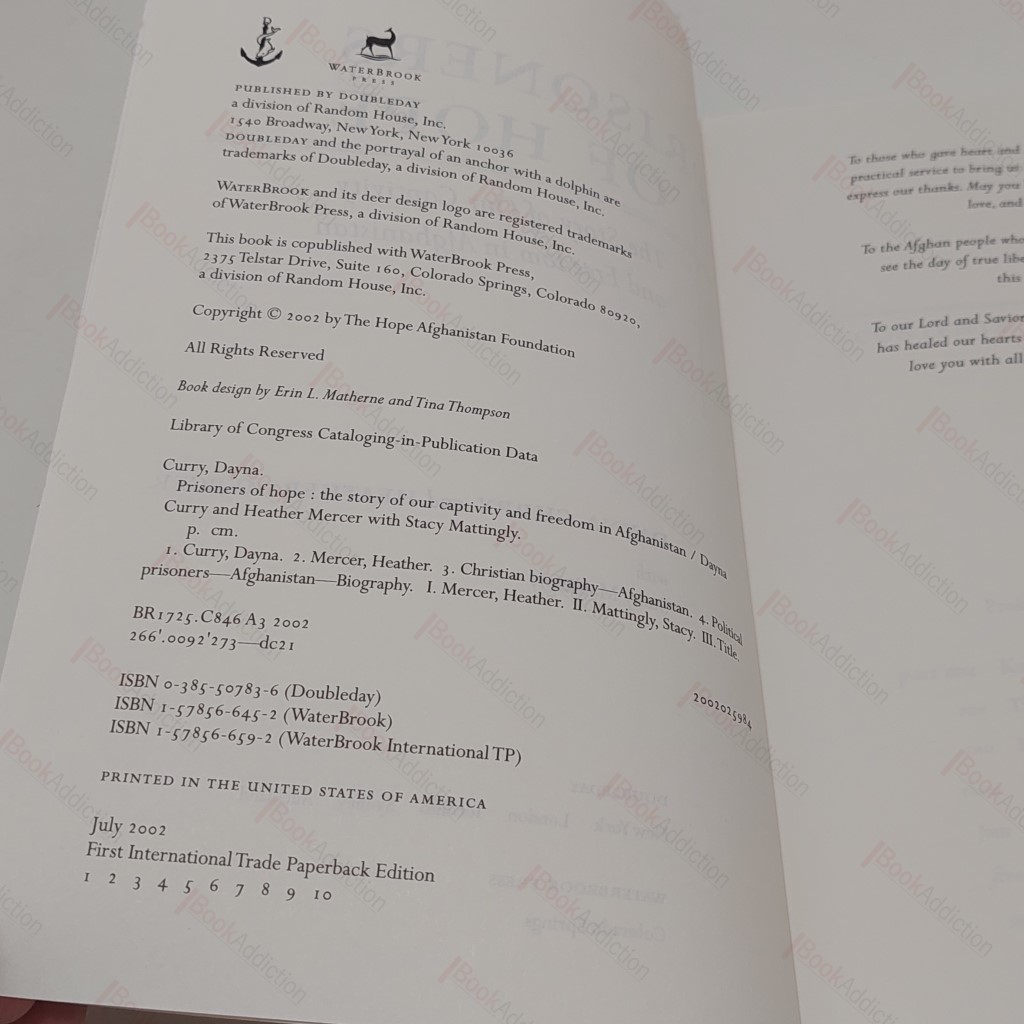 WATERBROOK
PRESS
PUBLISHED BY DOUBLEDAY
a division of Random House, Inc.
1540 Broadway, New York, New York 10036
DOUBLEDAY and the portrayal of an anchor with a dolphin are
trademarks of Doubleday, a division of Random House, Inc.
WATERBROOK and its deer design logo are registered trademarks
of WaterBrook Press, a division of Random House, Inc.
This book is copublished with WaterBrook Press,
2375 Telstar Drive, Suite 160, Colorado Springs, Colorado 80920,
a division of Random House, Inc.
Copyright © 2002 by The Hope Afghanistan Foundation
All Rights Reserved
Book design by Erin L. Matherne and Tina Thompson
Library of Congress Cataloging-in-Publication Data
Curry, Dayna.
Prisoners of hope : the story of our captivity and freedom in Afghanistan / Dayna
Curry and Heather Mercer with Stacy Mattingly.
p. cm.
1. Curry, Dayna. 2. Mercer, Heather. 3. Christian biography—Afghanistan. 4. Political
prisoners—Afghanistan—Biography. I. Mercer, Heather. II. Mattingly, Stacy. III. Title.
BR1725.C846 A3 2002
266'.0092'273—dc21
2002025984
ISBN 0-385-50783-6 (Doubleday)
ISBN 1-57856-645-2 (WaterBrook)
ISBN 1-57856-659-2 (WaterBrook International TP)
PRINTED IN THE UNITED STATES OF AMERICA
July 2002
First International Trade Paperback Edition
1 2 3 4 5 6 7 8 9 10
To those who gave heart and
practical service to bring us
express our thanks. May you
love, and
To the Afghan people who
see the day of true libe
this
To our Lord and Savior
has healed our hearts
love you with all
BookAddiction